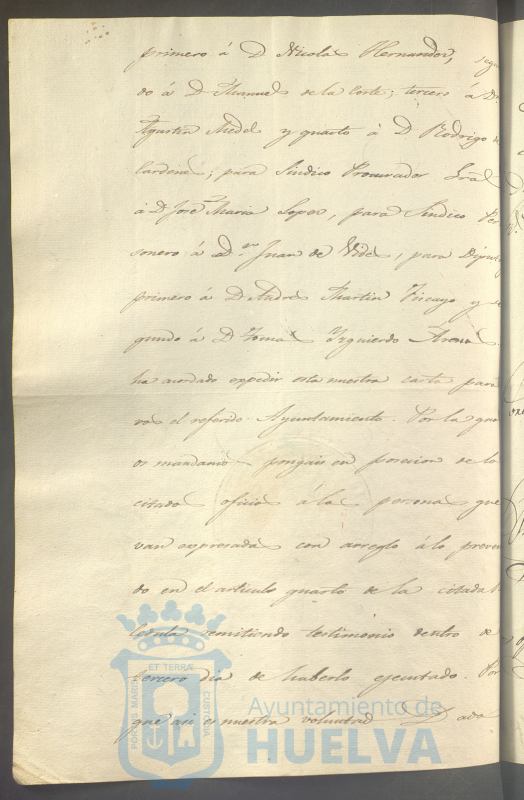 primero á D Nicolas Hernandez, segun
do á D Manuel de la Corte; tercero á Dn.
Agustin Medel y quarto á D Rodrigo de
Cardenas; para Sindico Procurador Gral
á D José Maria Lopez, para Sindico Per
sonero á D.n Juan de Vides, para Diputado
primero á D Andres Martin Vizcayo y se
gundo á D Tomas Yzquierdo Arenas
ha acordado expedir esta nuestra carta para
vos el referido Ayuntamiento. Por la que
os mandamos pongais en posecion de los
citados oficios á las personas que
van expresadas con arreglo á lo preveni
do en el articulo quarto de la citada
Cedula remitiendo testimonio dentro de
tercero dia de haberlo ejecutado. Por
que asi es nuestra voluntad D ada
PORTUS MARIS ET TERRÆ CUSTODIA
Ayuntamiento de
HUELVA